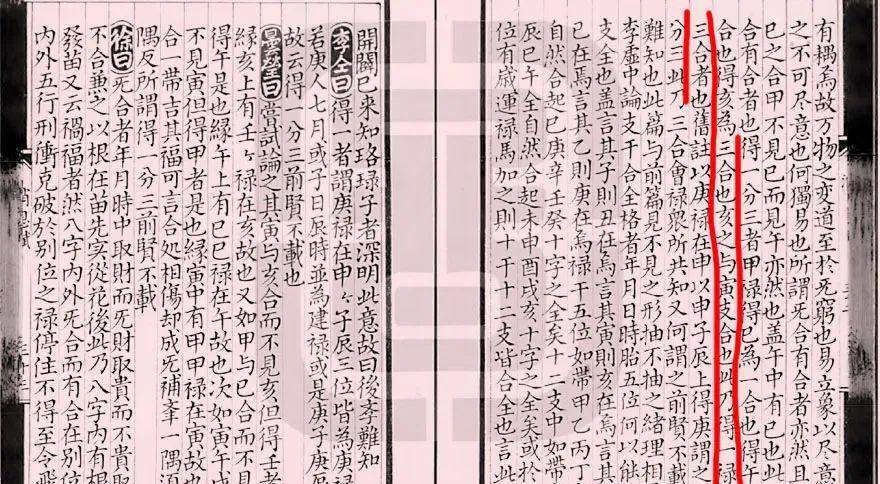 有耦焉故万物之变道至於无窮也易立象以尽意
之不可尽意也何獨易也所謂无合有合者亦然且
巳之合甲不見巳而見午亦然也蓋午中有巳也此
合有合者也得一分三者甲禄得巳為一合也得午
合也得亥為三合也亥之与寅支合也此乃得一禄
三合者也舊註以庚禄在申以申子辰上得庚謂之
分三此乃三合會禄衆所共知又何謂之前賢不載
難知也此篇与前篇見不見之形抽不抽之緒理相
李虚中論支干合全格者年月日時胎五位何以能
支全也盖言其子則丑在焉言其寅則亥在焉言其
巳在焉言其乙則庚在焉為禄干五位如帶甲乙丙丁
自然合起巳庚辛壬癸十字之全矣十二支中如帶
辰巳午全自然合起未申酉戌亥十字之全矣或於
位有歳運禄馬加之則十干十二支皆合全也言此
開闢已来知珞琭子者深明此意故曰後李難知
李仝曰得一者謂庚禄在申々子辰三位皆為庚禄
若庚人七月或子日辰時並為建禄或是庚子庚辰
故云得一分三前賢不載也
曇瑩曰嘗試論之其寅与亥合而不見亥但得壬者
緣亥上有壬々禄在亥故也又如甲与巳合而不見
得午是也緣午上有巳巳禄在午故也次如寅午戌
不見寅但得甲者是也緣寅中有甲甲禄在寅故也
合一帶吉其福可言合処相傷却成无補夆一隅須
隅反所謂得一分三前賢不載
徐曰无合者年月時中取財而无財取貴而不貴取
不合兼之以根在苗先实從花後此乃八字內有根
發苗又云禍福者然八字內外无合而有合在別位
內外五行刑衝克破於別位之禄停住不得至令飛